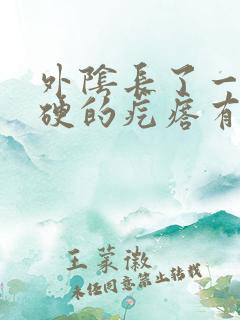 外陰長了一
硬的疙瘩有
王葉徽
未经同意禁止转载